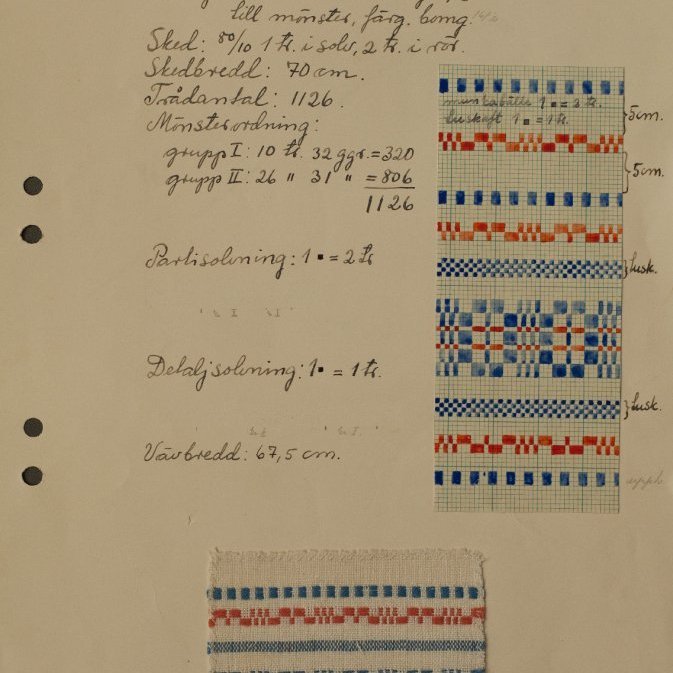 till mönster, färg. bomg.
Sked: 80/10 1 tr. i solv, 2 tr. i rör.
Skedbredd: 70 cm.
Trådantal: 1126.
Mönsterordning:
grupp I: 10 tr. 32 ggr. = 320
grupp II: 26 " 31 " = 806
1126
Partisolvning: 1 ▪ = 2 tr.
Detaljsolvning: 1 ▪ = 1 tr.
Vävbredd: 67,5 cm.
munkabälte 1 ▪ = 3 tr.
tuskaft 1 ▪ = 1 tr.
5cm.
5cm.
tusk.
tusk.